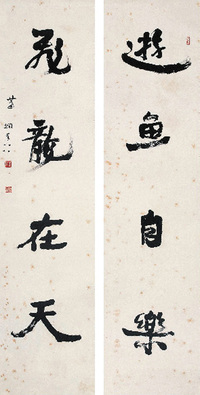 遊魚自樂
飛龍在天